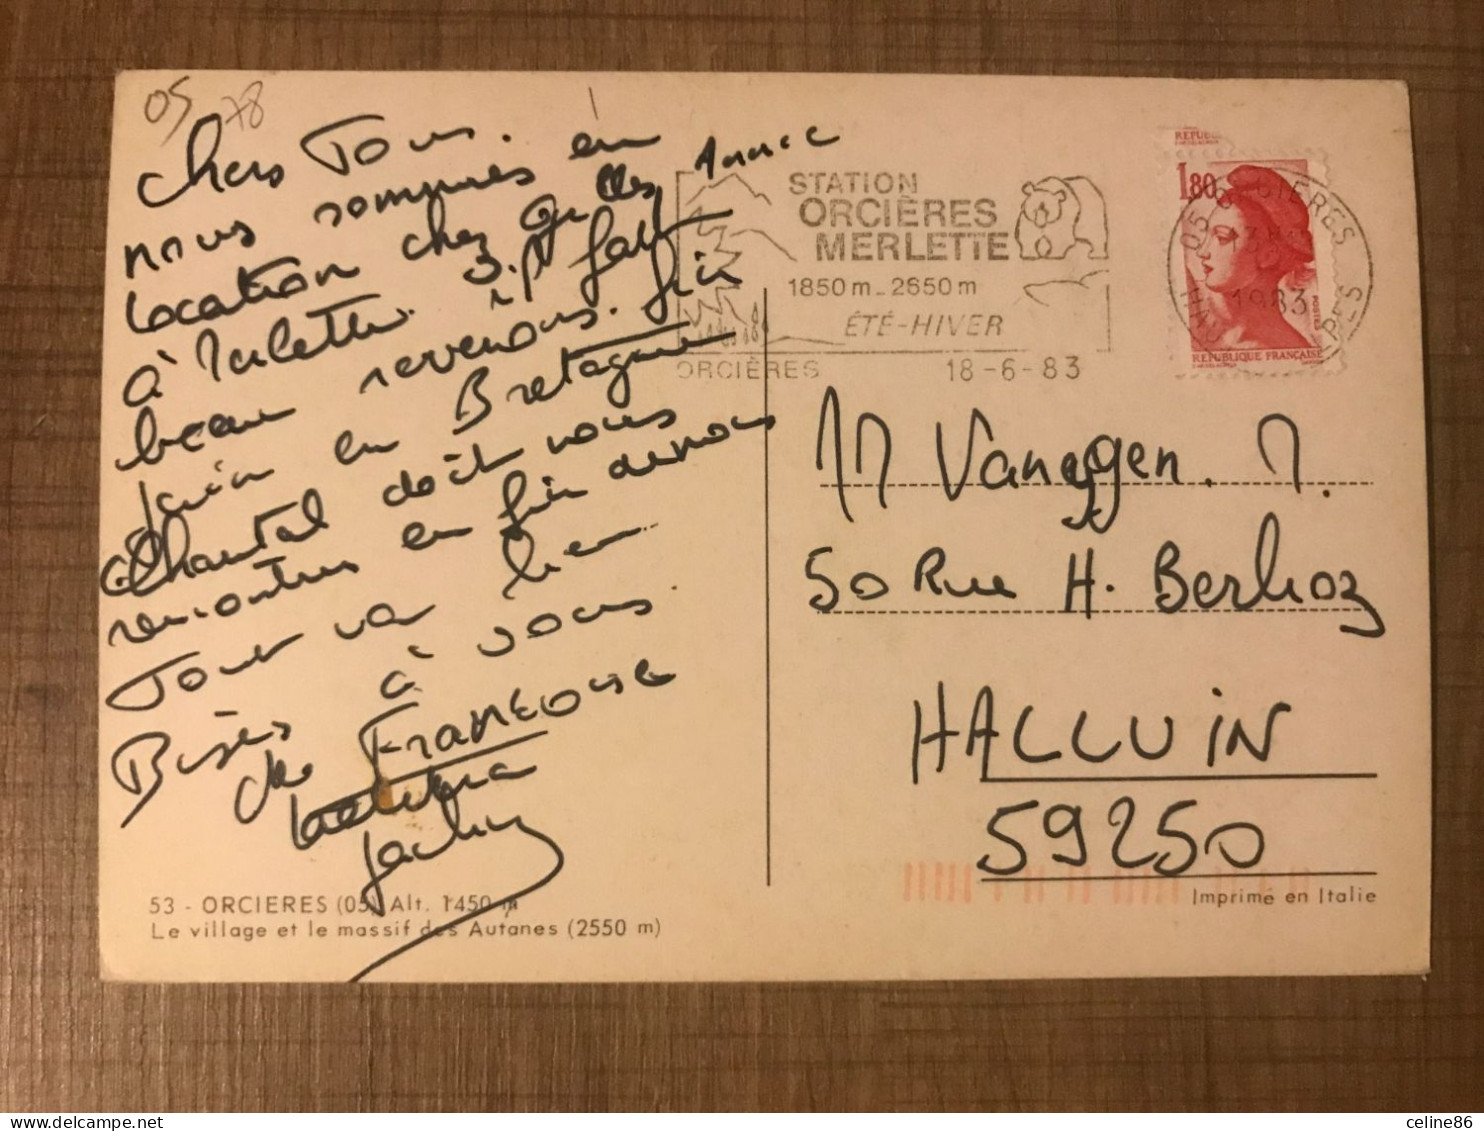 05 78
Chers Tous.
nous sommes en
location chez
à
beau revenons. fin
Juin en Bretagne
Chantal doit nous
rencontrer en fin de nous
Tout va bien
Bises à vous.
de FRANÇOISE
Laetitia
Jacky
53 - ORCIERES (05) Alt. 1450 m
Le village et le massif des Autanes (2550 m)
STATION
ORCIÈRES
MERLETTE
1850m_2650m
ÉTÉ-HIVER
ORCIÈRES 18-6-83
REPUBLIQUE FRANÇAISE
1.80
POSTES
1983
M Vaneggen. M.
50 Rue H. Berlioz
HALLUIN
59250
Imprimé en Italie
celine86